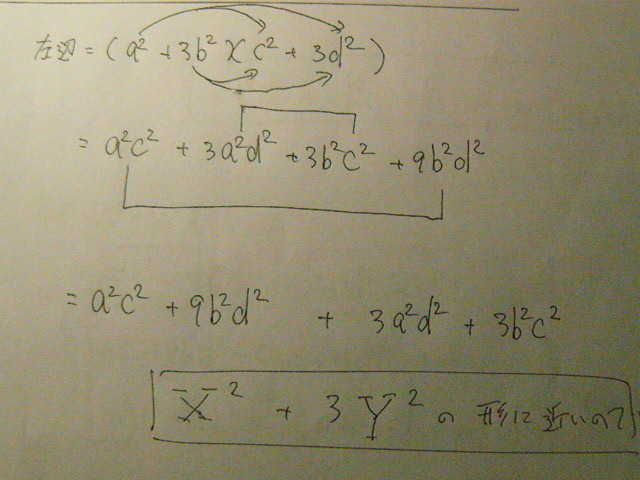 左辺=(a²+3b²)(c²+3d²)
=a²c²+3a²d²+3b²c²+9b²d²
=a²c²+9b²d² + 3a²d²+3b²c²
X²+3Y²の形に近いので